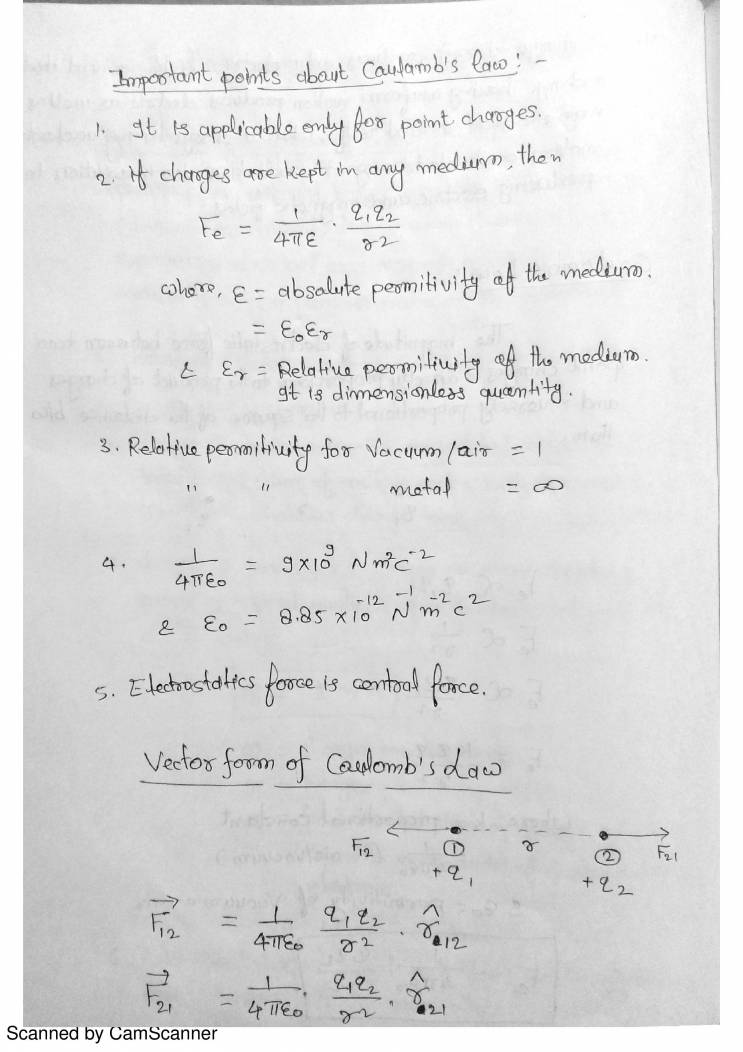 Important points about Coulamb's law: -
1. It is applicable only for point charges.
2. If charges are kept in any medium, then
Fe = 1/4πε · q1q2/r2
where, ε = absalute permitivity of the medium.
= ε0εr
& εr = Relative permitivity of the medium.
It is dimensionless quantity.
3. Relative permitivity for Vacuum/air = 1
" " metal = ∞
4. 1/4πε0 = 9×10^9 N m^2 C^-2
& ε0 = 8.85 × 10^-12 N^-1 m^-2 C^2
5. Electrostatics force is central force.
Vector form of Coulomb's Law
F12 ① r ② F21
+q1 +q2
F⃗12 = 1/4πε0 q1q2/r2 · r̂12
F⃗21 = 1/4πε0 · q1q2/r2 · r̂21
Scanned by CamScanner